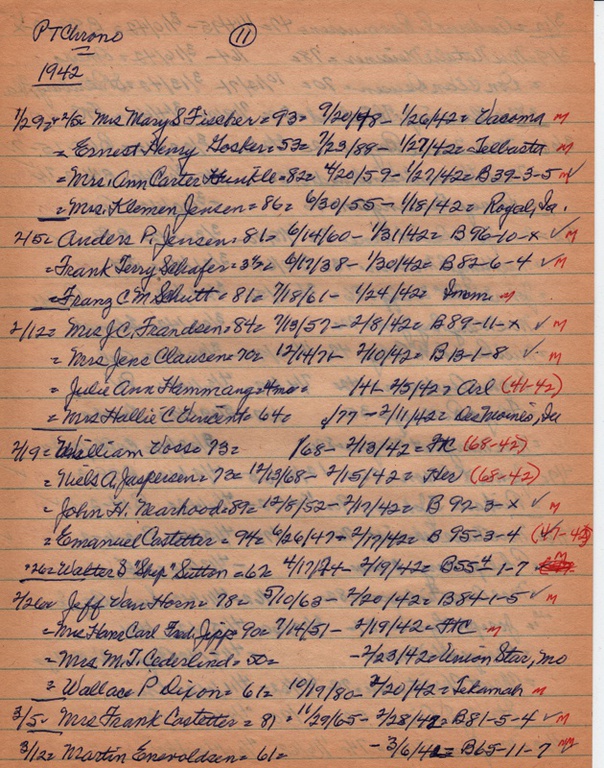 PT Chrono (11)
1942
1/29 = 2/5 Mrs Mary S Fischer = 93 = 9/20/48 - 1/26/42 = Vacoma M
= Ernest Henry Gosker = 53 = 7/23/89 - 1/27/42 = Telbasta M
= Mrs. Ann Carter Hunkle = 82 = 4/20/59 - 1/27/42 = B 39-3-5 ✓ M
= Mrs. Klemen Jensen = 86 = 6/30/55 - 1/18/42 = Royal, Ia.
2/5 = Anders P. Jensen = 81 = 6/14/60 - 1/31/42 = B 96-10-x ✓ M
= Frank Terry Schafer = 3½ = 6/17/38 - 1/30/42 = B 82-6-4 ✓ M
= Franz C M Schutt = 81 = 7/18/61 - 1/24/42 = Imm M
2/12 = Mrs J. C. Frandsen = 84 = 7/13/57 - 2/8/42 = B 89-11-x ✓ M
= Mrs Jens Clausen = 70 = 12/14/71 - 2/10/42 = B 13-1-8 ✓ M
= Julie Ann Hammang = 4mo = /41 - 2/5/42 = Arl (41-42)
= Mrs Hallie C Vincent = 64 = /77 - 2/11/42 = Des Moines, Ia
2/19 = William Voss = 73 = 1/68 - 2/13/42 = HC (68-42)
= Niels A. Jaspersen = 73 = 12/13/68 - 2/15/42 = Her (68-42)
= John H. Nearhood = 89 = 12/8/52 - 2/17/42 = B 92-3-x ✓ M
= Emanuel Castetter = 94 = 6/26/47 - 2/17/42 = B 95-3-4 (47-42)
"26 = Walter S "Skip" Sutton = 67 = 4/17/74 - 2/19/42 = B 55-1-7 M
2/26 = Jeff Van Horn = 78 = 5/10/63 - 2/20/42 = B 84-1-5 ✓ M
= Mrs Hans Carl Fred. Jipp = 90 = 7/14/51 - 2/19/42 = HC M
= Mrs M. T. Cederlind = 50 = - 2/23/42 = Union Star, Mo
= Wallace P Dixon = 61 = 10/19/80 - 2/20/42 = Tekamah M
3/5 = Mrs Frank Castetter = 81 = 11/29/65 - 2/28/42 = B 81-5-4 ✓ M
3/12 = Martin Enevoldsen = 61 = - 3/6/42 = B 65-11-7 M